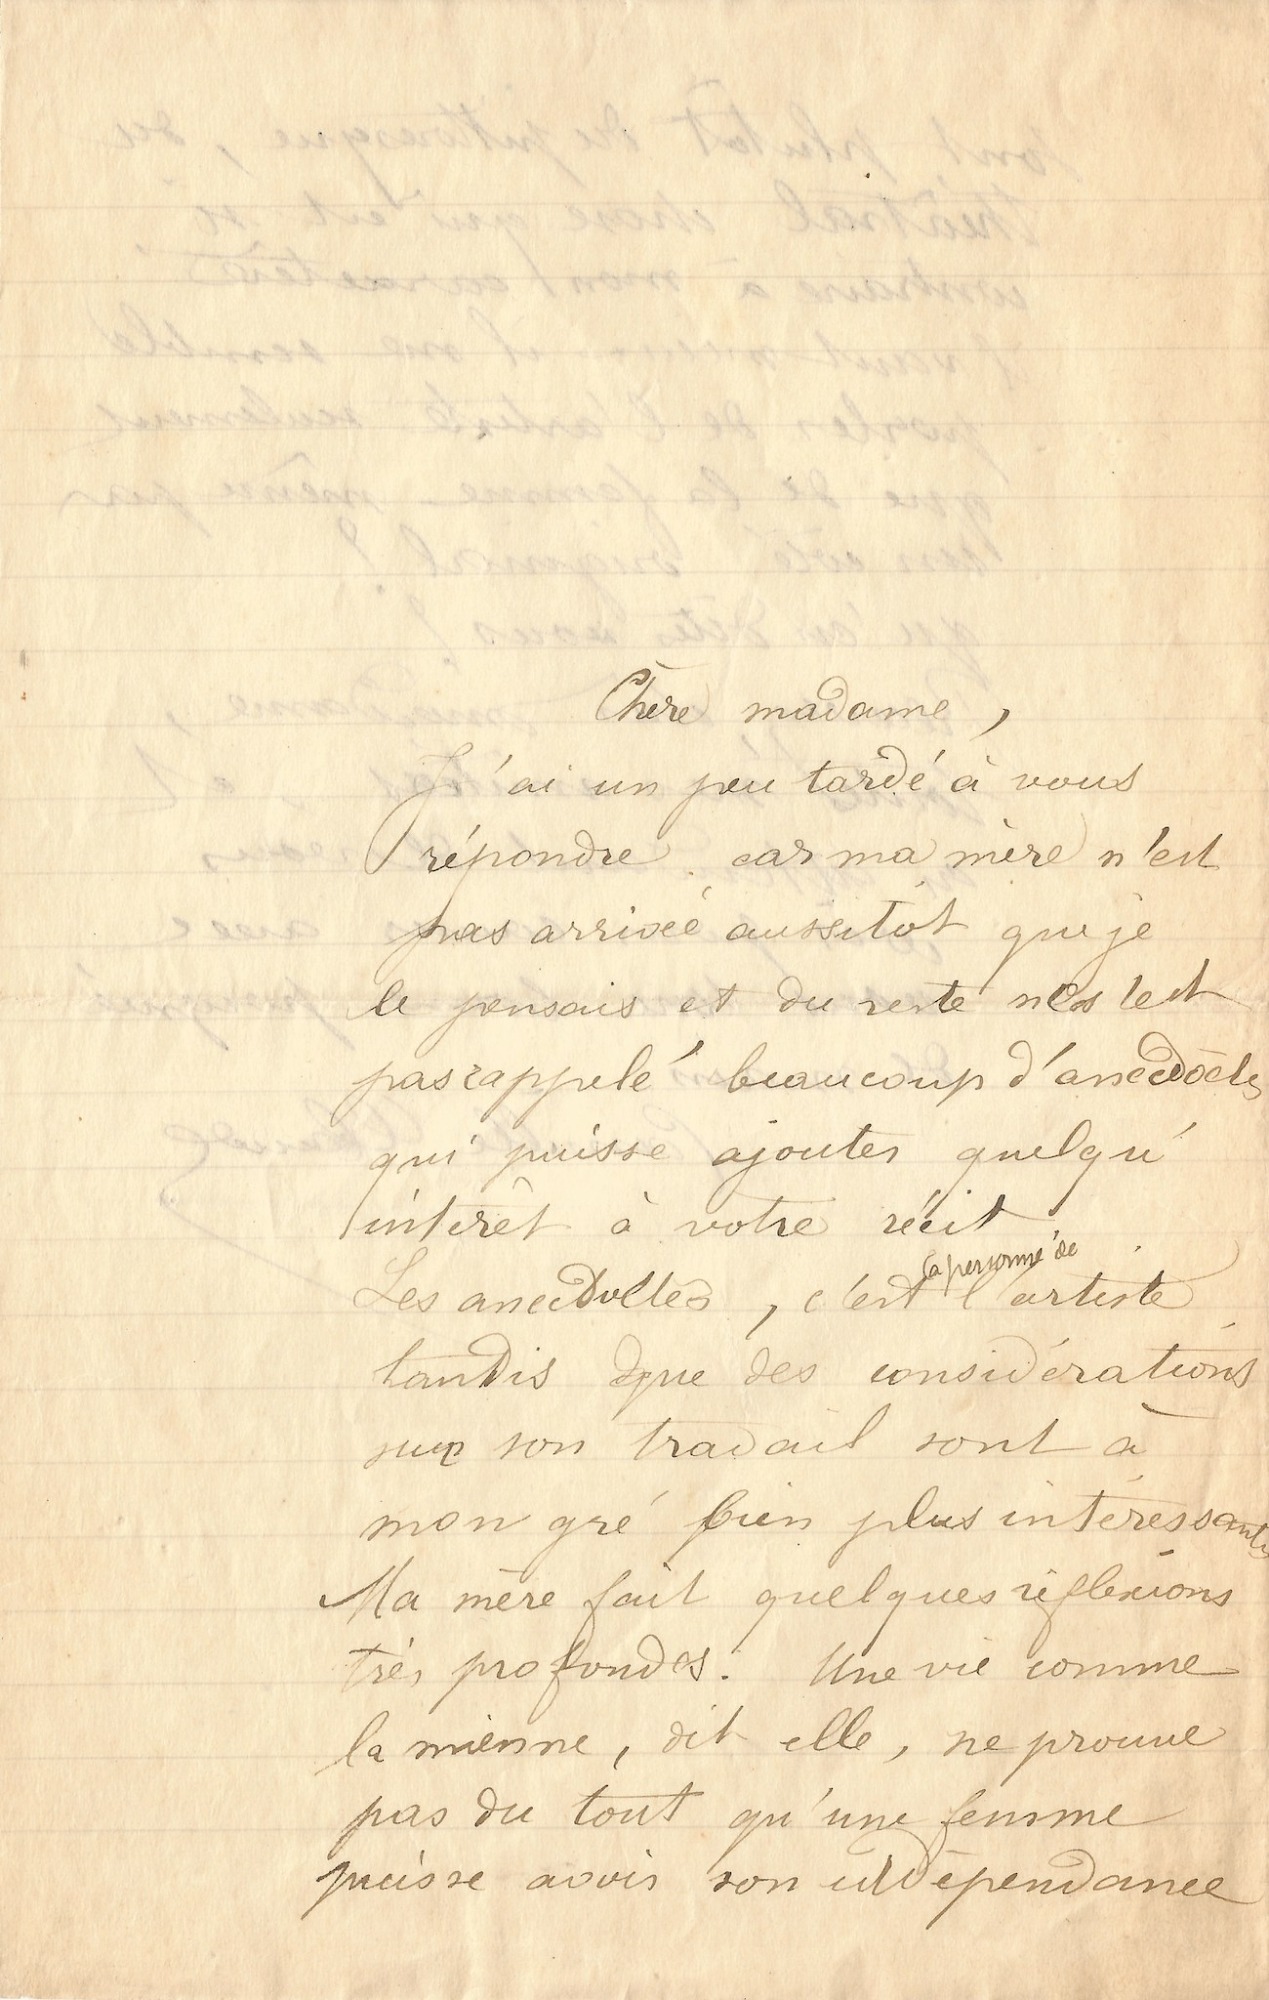 Chère madame,
J'ai un peu tardé à vous
répondre car ma mère n'est
pas arrivée aussitôt que je
le pensais et du reste s'est
pas rappelé beaucoup d'anecdoctes
qui puisse ajouter quelqu'
intérêt à votre récit
Les anecdoctes, c'est la personne de l'artiste
tandis que des considérations
sur son travail sont à
mon gré bien plus intéressantes
Ma mère fait quelques réflexions
très profondes. Une vie comme
la mienne, dit elle, ne prouve
pas du tout qu'une femme
puisse avoir son indépendance